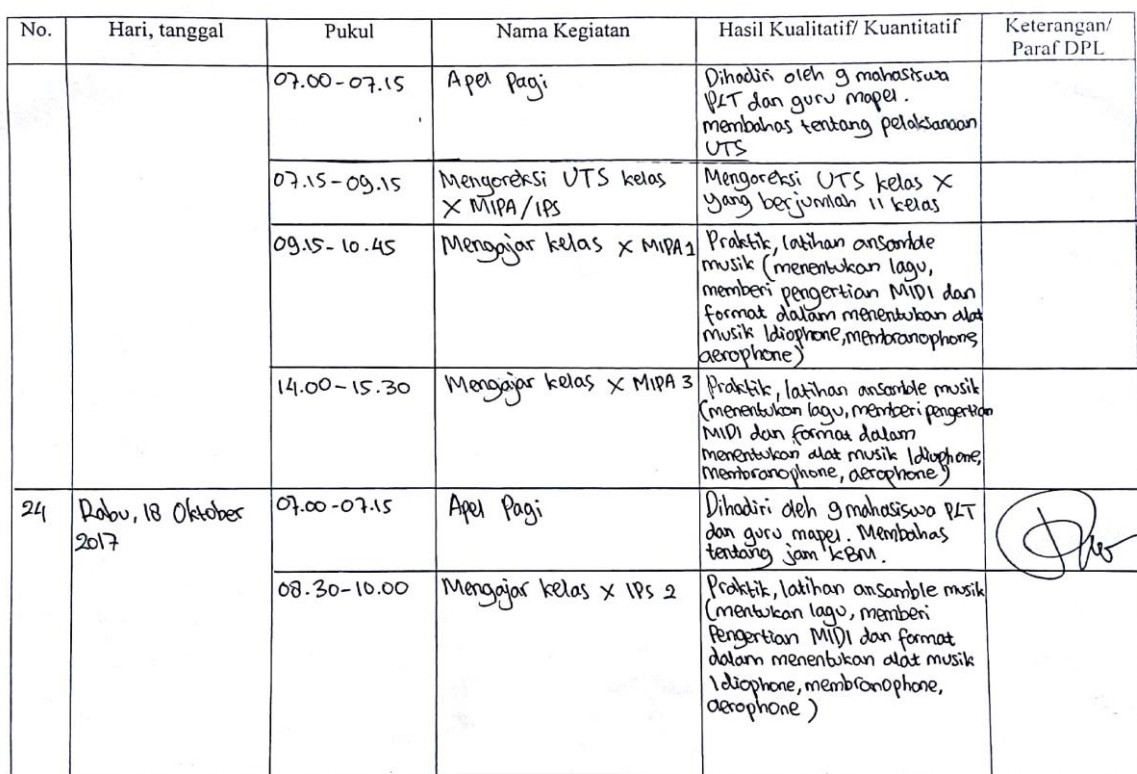 No. Hari, tanggal Pukul Nama Kegiatan Hasil Kualitatif/ Kuantitatif Keterangan/
Paraf DPL
07.00 - 07.15 Apel Pagi Dihadiri oleh 9 mahasiswa
PLT dan guru mapel.
membahas tentang pelaksanaan
UTS
07.15 - 09.15 Mengoreksi UTS kelas Mengoreksi UTS kelas X
X MIPA/IPS yang berjumlah 11 kelas
09.15 - 10.45 Mengajar kelas X MIPA 1 Praktik, latihan ansamble
musik (menentukan lagu,
memberi pengertian MIDI dan
format dalam menentukan alat
musik Idiophone, membranophone,
aerophone)
14.00 - 15.30 Mengajar kelas X MIPA 3 Praktik, latihan ansamble musik
(menentukan lagu, memberi pengertian
MIDI dan format dalam
menentukan alat musik Idiophone,
membranophone, aerophone)
24 Rabu, 18 Oktober 07.00 - 07.15 Apel Pagi Dihadiri oleh 9 mahasiswa PLT
2017 dan guru mapel. Membahas
tentang jam KBM.
08.30 - 10.00 Mengajar kelas X IPS 2 Praktik, latihan ansamble musik
(mentukan lagu, memberi
Pengertian MIDI dan format
dalam menentukan alat musik
Idiophone, membranophone,
aerophone)